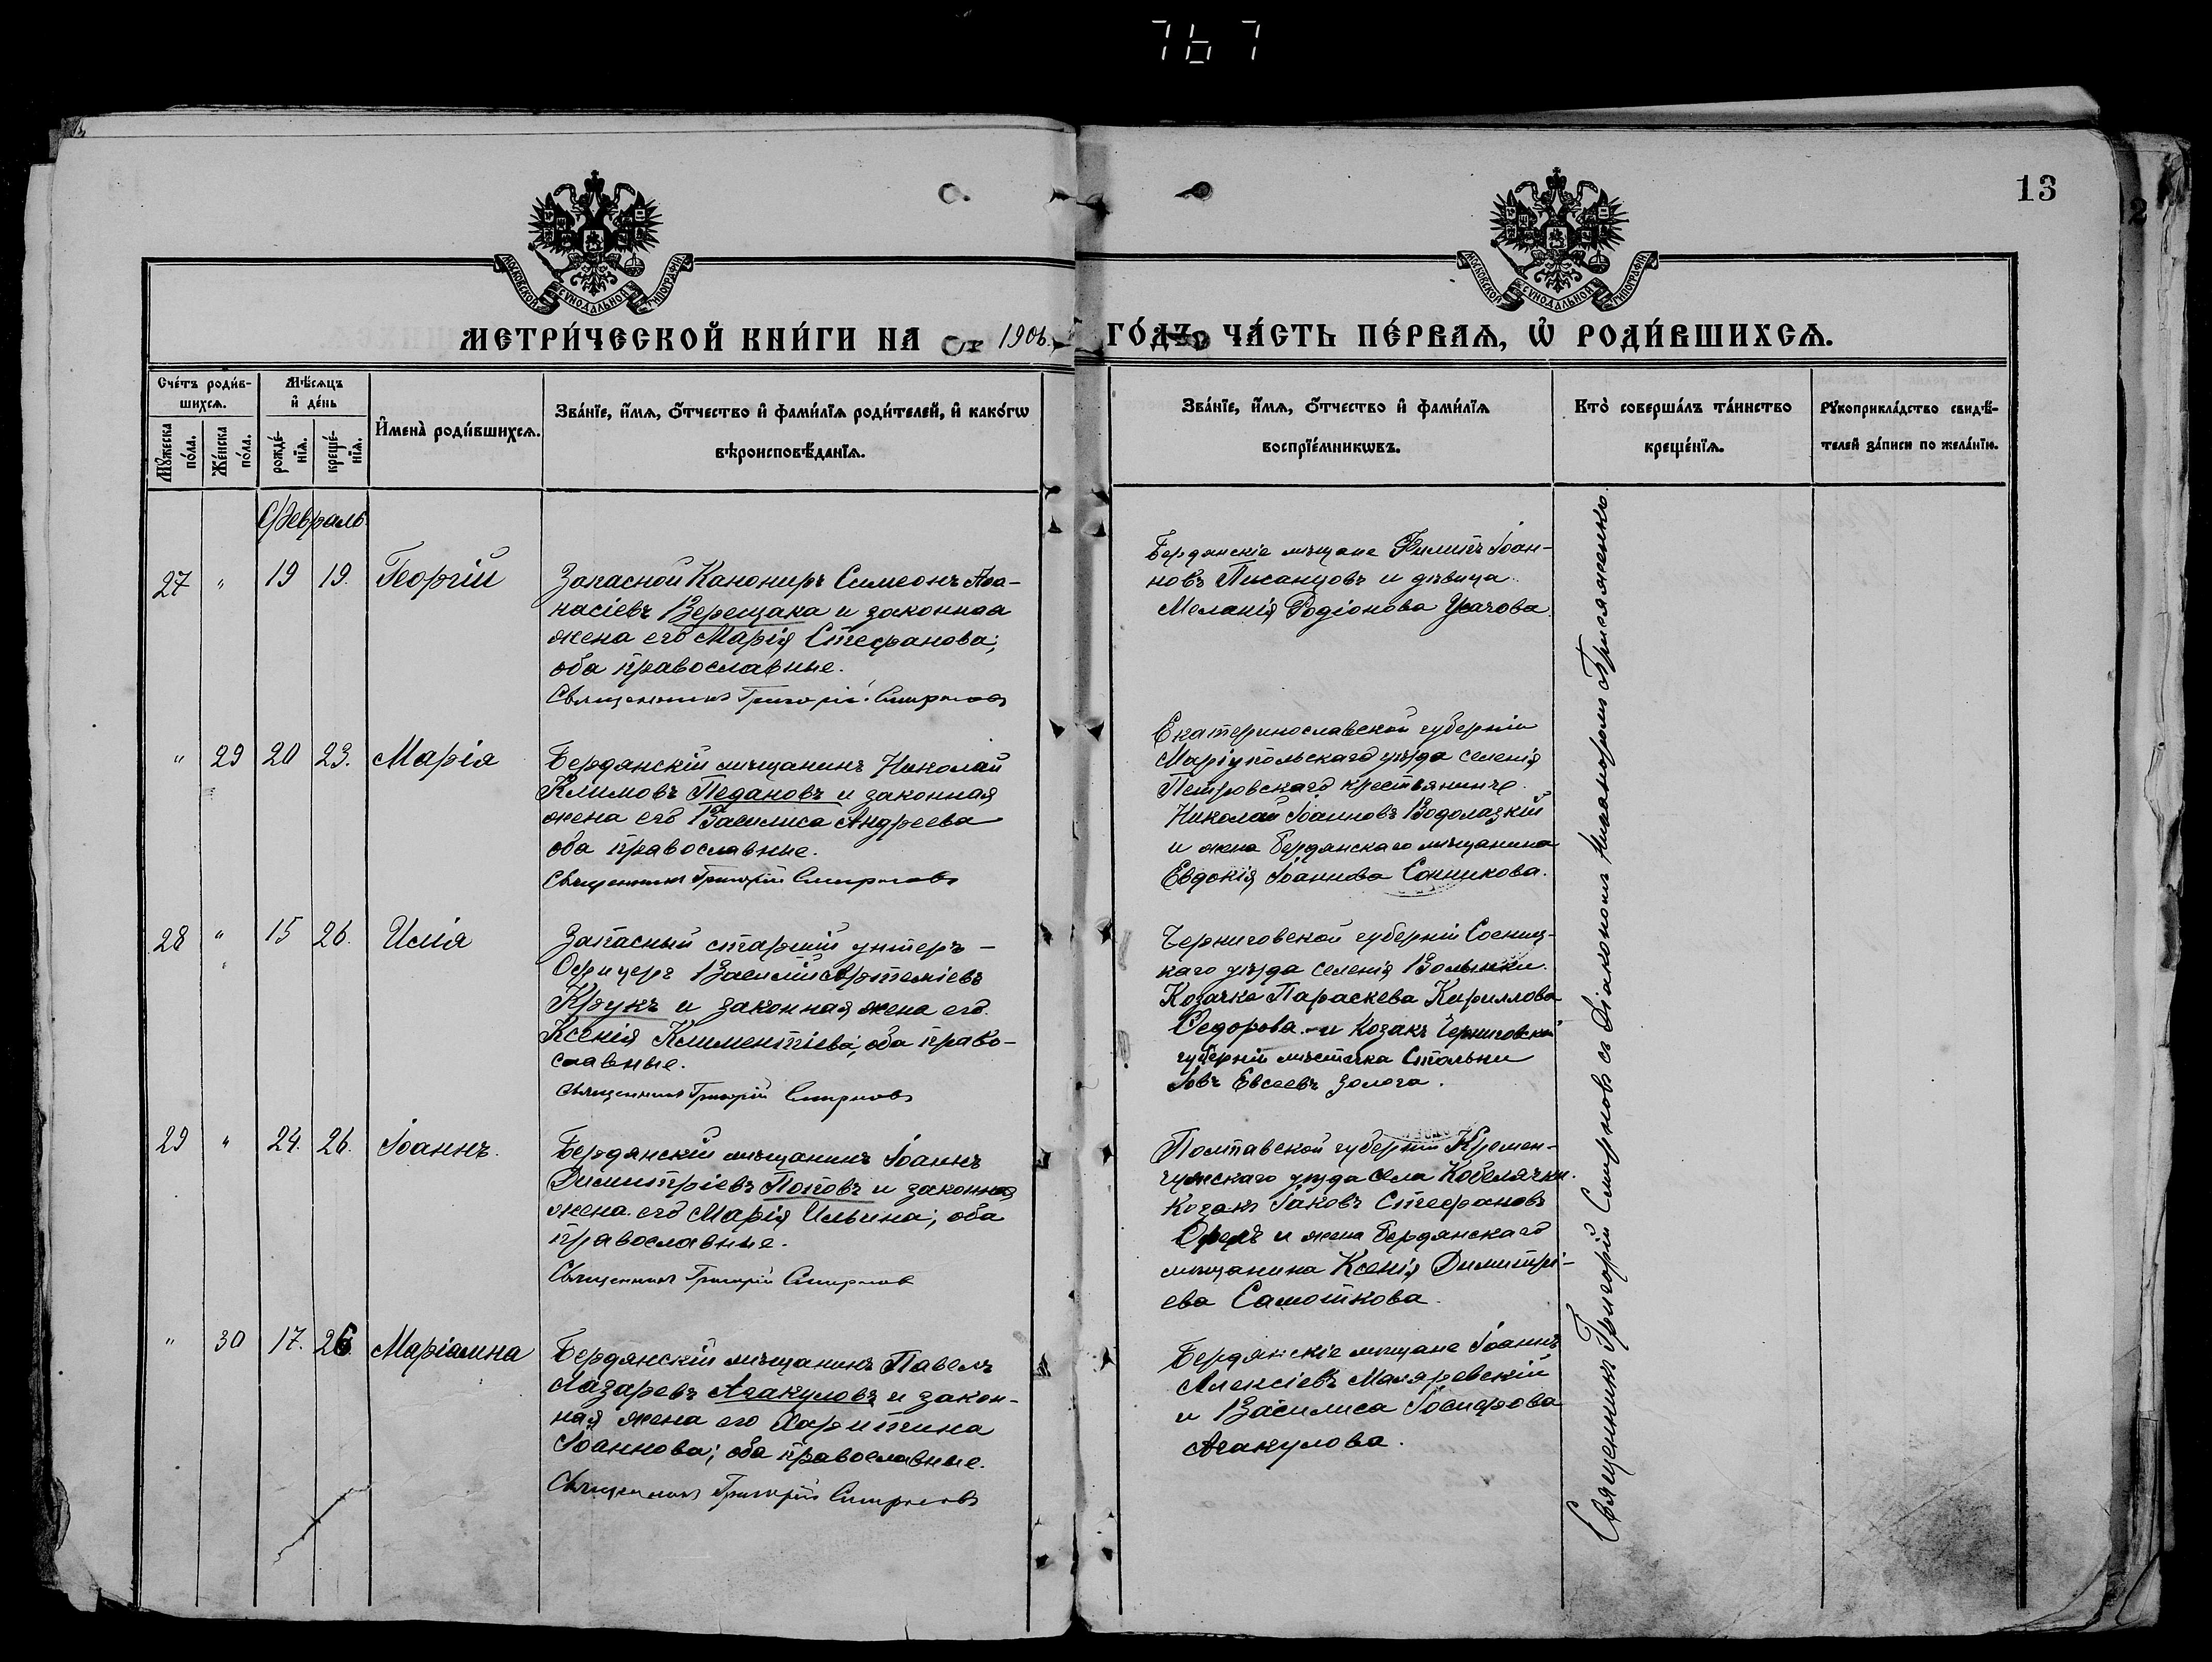 767
13
МОСКОВСКОЙ СѴНОДАЛЬНОЙ ТИПОГРАФІИ
МОСКОВСКОЙ СѴНОДАЛЬНОЙ ТИПОГРАФІИ
МЕТРИ́ЧЕСКОЙ КНИ́ГИ НА 1906 ГО́ДЪ, ЧА́СТЬ ПЕ́РВАѦ, Ѡ҆ РОДИ́ВШИХСѦ.
Сче́тъ роди́в-
шихсѧ.
Мѣ́сѧцъ
и҆ де́нь
Мꙋ́жеска по́ла.
Же́нска по́ла.
рожде́-
нїѧ.
креще́-
нїѧ.
И҆мена̀ роди́вшихсѧ.
Зва́нїе, и҆́мѧ, ѻ҆́тчество и҆ фами́лїѧ роди́телей, и҆ како́гѡ
вѣроисповѣ́данїѧ.
Зва́нїе, и҆́мѧ, ѻ҆́тчество и҆ фами́лїѧ
воспрїе́мникѡвъ.
Кто̀ соверша́лъ та́инство
креще́нїѧ.
Рꙋкоприкла́дство свидѣ́-
телей за́писи по жела́нїю.
Февраль
27 " 19 19. Георгій
Запасной Канониръ Симеонъ Афа-
насіевъ Верещака и законная
жена его Марія Стефанова;
оба православные.
Священникъ Григорій Смирновъ
Бердянскіе мѣщане Филипъ Іоан-
новъ Писанцовъ и дѣвица
Меланія Родіонова Усачова
" 29 20 23. Марія
Бердянскій мѣщанинъ Николай
Климовъ Педановъ и законная
жена его Василиса Андреева
оба православные.
Священникъ Григорій Смирновъ
Екатеринославской губерніи
Маріупольскаго уѣзда селенія
Петровскаго крестьянинъ
Николай Іоанновъ Водолазкій
и жена бердянскаго мѣщанина
Евдокія Іоаннова Сонникова.
28 " 15 26. Илія
Запасный старшій унтеръ-
Офицеръ Василій Артеміевъ
Крукъ и законная жена его
Ксенія Климентіева; оба право-
славные.
Священникъ Григорій Смирновъ
Черниговской губерніи Сосниц-
каго уѣзда селенія Волынки
Козачка Параскева Кириллова
Федорова и Козакъ Черниговской
губерніи мѣстечка Стольни
Іовъ Евсеевъ Золога.
29 " 24. 26. Іоаннъ.
Бердянскій мѣщанинъ Іоаннъ
Димитріевъ Поповъ и законная
жена его Марія Ильина; оба
православные.
Священникъ Григорій Смирновъ
Полтавской губерніи Кремен-
чужскаго уѣзда села Кобелячки
Козакъ Іаковъ Стефановъ
и жена бердянскаго
мѣщанина Ксенія Димитрі-
ева Самоткова.
" 30 17. 26. Маріамна
Бердянскій мѣщанинъ Павелъ
Лазаревъ Агакуловъ и закон-
ная жена его Харитина
Іоаннова; оба православные.
Священникъ Григорій Смирновъ
Бердянскіе мѣщане Іоаннъ
Алексіевъ Маляревскій
и Василиса Іосифова
Агакулова.
Священникъ Григорій Смирновъ съ Діакономъ Никаноромъ Присяженко.